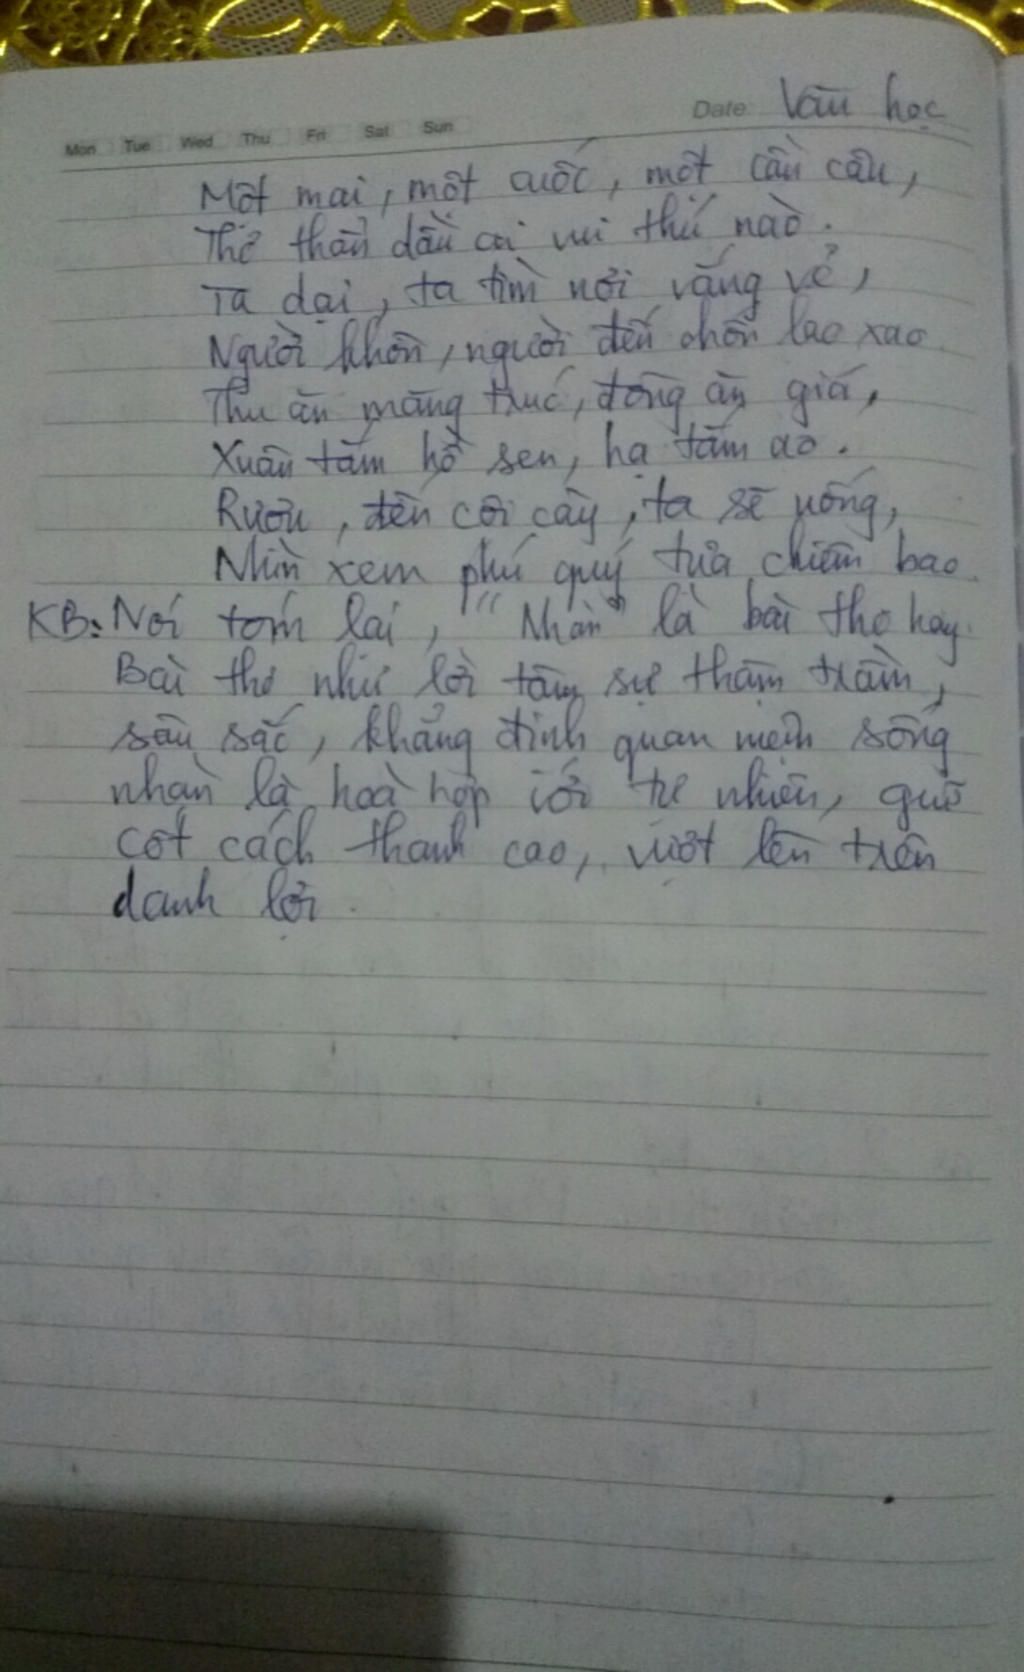 Date Văn học
Mon Tue Wed Thu Fri Sat Sun
Một mai, một cuốc, một cần câu,
Thơ thẩn dầu ai vui thú nào.
Ta dại, ta tìm nơi vắng vẻ,
Người khôn, người đến chốn lao xao
Thu ăn măng trúc, đông ăn giá,
Xuân tắm hồ sen, hạ tắm ao.
Rượu, đến cội cây, ta sẽ uống,
Nhìn xem phú quý tựa chiêm bao.
KB: Nói tóm lại, "Nhàn" là bài thơ hay.
Bài thơ như lời tâm sự thâm trầm,
sâu sắc, khẳng định quan niệm sống
nhàn là hoà hợp với tự nhiên, giữ
cốt cách thanh cao, vượt lên trên
danh lợi.